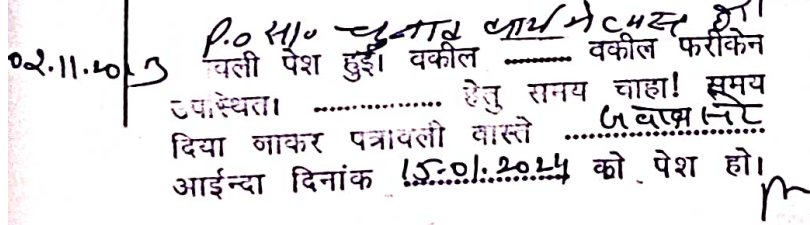 P.O सा० चुनाव कार्य में व्यस्त है।
02.11.2023 वली पेश हुई। वकील ......... वकील फरीकेन
उपस्थित। .................. हेतु समय चाहा! समय
दिया जाकर पत्रावली वास्ते ....................
आईन्दा दिनांक 15.01.2024 को पेश हो।